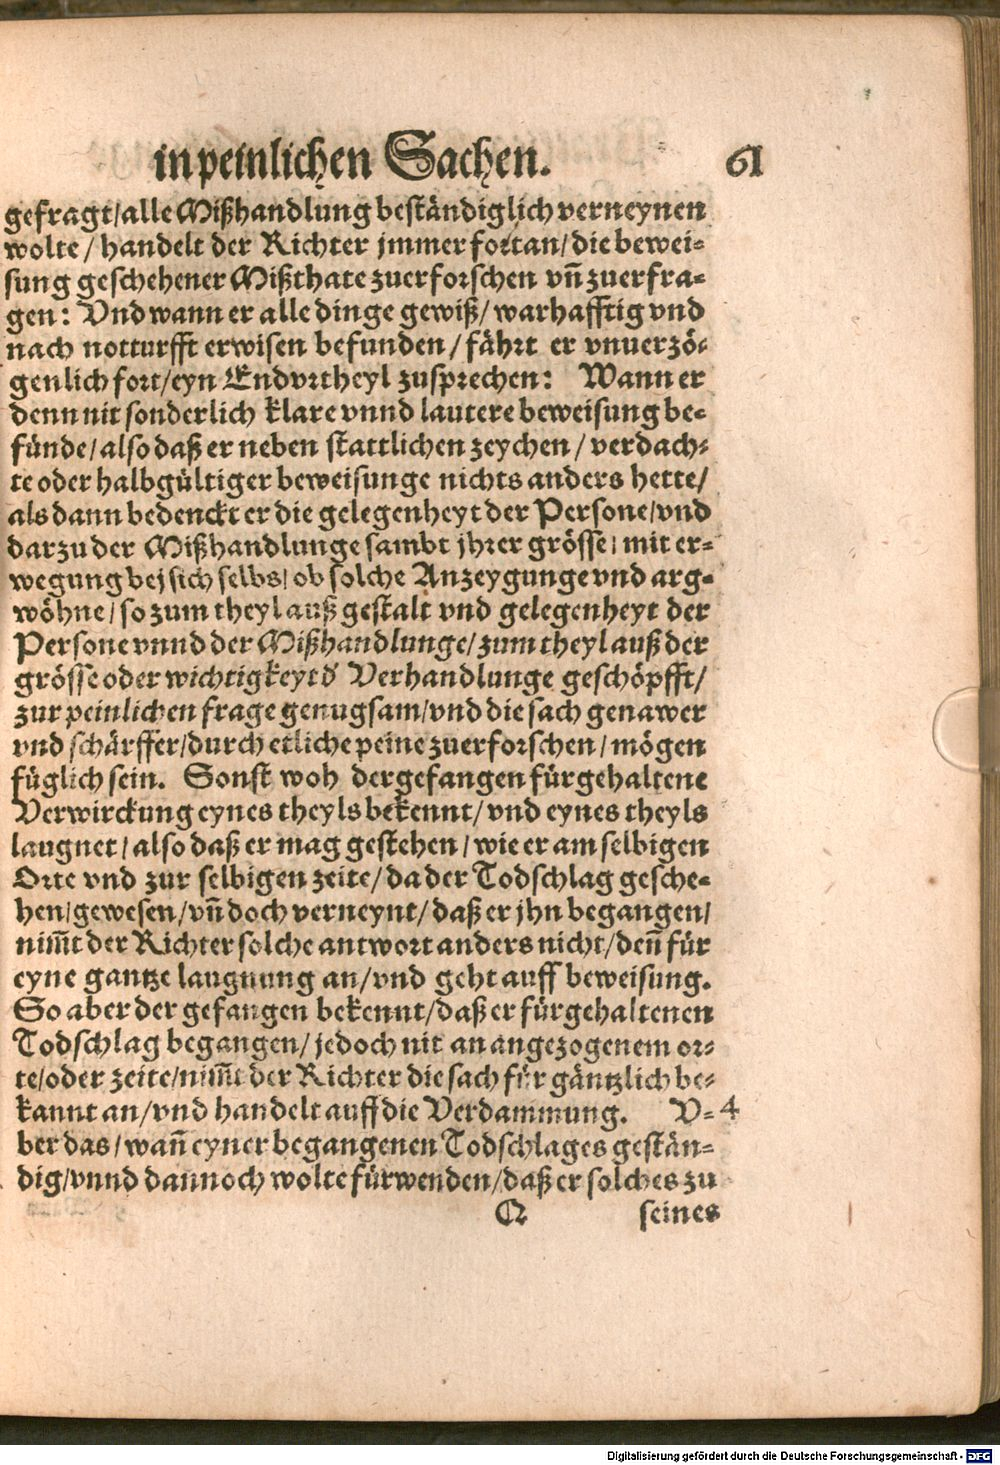 in peinlichen Sachen. 61
gefragt/alle Mißhandlung beständiglich verneynen
wolte/ handelt der Richter jmmer fortan/die bewei-
sung geschehener Mißthate zuerforschen vñ zuerfra-
gen: Vnd wann er alle dinge gewiß/ warhafftig vnd
nach notturfft erwisen befunden/ fährt er vnuerzö-
genlich fort/eyn Endvrtheyl zusprechen: Wann er
denn nit sonderlich klare vnnd lautere beweisung be-
fünde/also daß er neben stattlichen zeychen/ verdach-
te oder halbgültiger beweisunge nichts anders hette/
als dann bedenckt er die gelegenheyt der Persone/vnd
darzu der Mißhandlunge sambt jhrer grösse/ mit er-
wegung bej sich selbs/ ob solche Anzeygunge vnd arg-
wöhne/ so zum theyl auß gestalt vnd gelegenheyt der
Persone vnnd der Mißhandlunge/ zum theyl auß der
grösse oder wichtigkeyt d' Verhandlunge geschöpfft/
zur peinlichen frage genugsam/vnd die sach genawer
vnd schärffer/durch etliche peine zuerforschen/ mögen
füglich sein. Sonst woh der gefangen fürgehaltene
Verwirckung eynes theyls bekennt/ vnd eynes theyls
laugnet/ also daß er mag gestehen/ wie er am selbigen
Orte vnd zur selbigen zeite/ da der Todschlag gesche-
hen/gewesen/vñ doch verneynt/ daß er jhn begangen/
nim̃t der Richter solche antwort anders nicht/deñ für
eyne gantze laugnung an/vnd geht auff beweisung.
So aber der gefangen bekennt/daß er fürgehaltenen
Todschlag begangen/ jedoch nit an angezogenem or-
te/oder zeite/nim̃t der Richter die sach für gäntzlich be-
kannt an/vnd handelt auff die Verdammung. V- 4
ber das/ wañ eyner begangenen Todschlages gestän-
dig/vnnd dannoch wolte fürwenden/daß er solches zu
Q seines
Digitalisierung gefördert durch die Deutsche Forschungsgemeinschaft - DFG